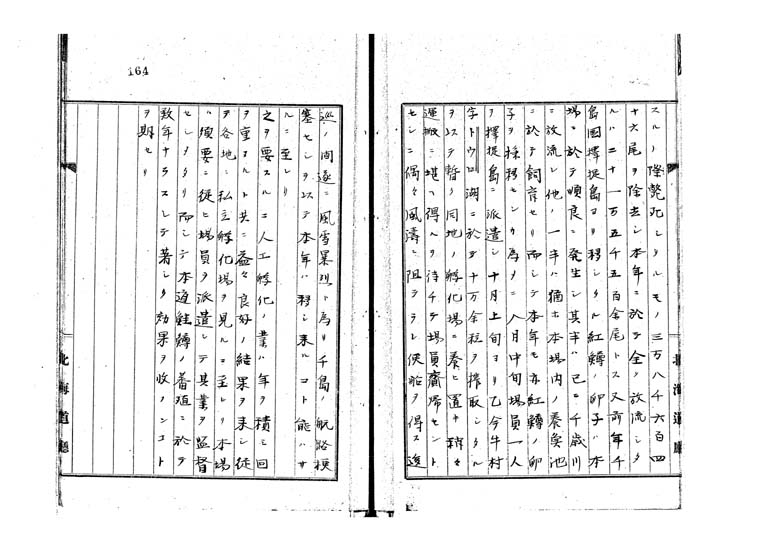 スルノ際斃死シタルモノ三万八千六百四
十六尾ヲ除去シ本年ニ於テ全ク放流シタ
ルハ二十一万五千五百余尾トス又前年千
島国択捉島ヨリ移シタル紅鱒ノ卵子ハ本
場ニ於テ順良ニ発生シ其半ハ已ニ千歳川
ニ放流シ他ノ一半ハ猶ホ本場内ノ養魚池
ニ於テ飼育セリ而シテ本年モ亦紅鱒ノ卵
子ヲ採移センカ為メニ八月中旬場員一人
ヲ択捉島ニ派遣シ十月上旬ヨリ乙今牛村
字トウロ湖ニ於テ十万余粒ヲ搾取シタル
ヲ以テ暫ク同地ノ孵化場ニ養ヒ置キ稍々
運搬ニ堪ヘ得ヘキヲ待チテ場員齎帰セント
センニ偶々風濤ニ阻テラレ便船ヲ得ス逡
164
巡ノ間遂ニ風雪暴烈ト為リ千島ノ航路梗
塞センヲ以テ本年ハ移シ来ルコト能ハサ
ルニ至レリ
之ヲ要スルニ人工孵化ノ業ハ年ヲ積ミ回
ヲ重ヌルト共ニ益々良好ノ結果ヲ来シ従
テ各地ニ私立孵化場ヲ見ルニ至レリ本場
ハ須要ニ従ヒ場員ヲ派遣シテ其業ヲ監督
センメタリ而シテ本道鮭鱒ノ蕃殖ニ於テ
数年ナラスシテ著シク効果ヲ収メンコト
ヲ期セリ
北海道庁
北海道庁